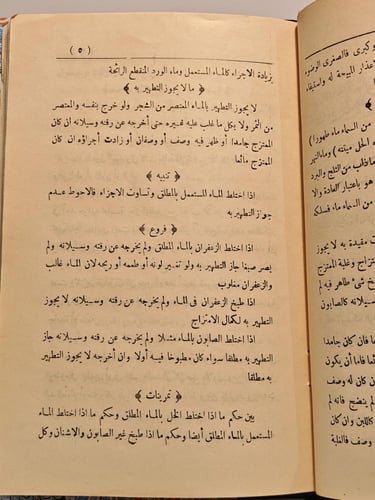 ( ٥ )
بزيادة الاجزاء كالماء المستعمل وماء الورد المنقطع الرائحة
﴿ ما لا يجوز التطهير به ﴾
لا يجوز التطهير بالماء المعتصر من الشجر ولو خرج بنفسه والمعتصر
من الثمر ولا بكل ما غلب عليه غيره حتى أخرجه عن رقته وسيلانه ان كان
الممتزج جامدا أو ظهر فيه وصف أو وصفان أو زادت أجزاؤه ان كان
الممتزج مائعا
﴿ تنبيه ﴾
اذا اختلط الماء المستعمل بالمطلق وتساوت الاجزاء فالاحوط عدم
جواز التطهير به
﴿ فروع ﴾
اذا اختلط الزعفران بالماء المطلق ولم يخرجه عن رقته وسيلانه ولم
يصر صبغا جاز التطهير به ولو تغير لونه أو طعمه أو ريحه لان الماء غالب
والزعفران مغلوب
اذا طبخ الزعفران فى الماء ولم يخرجه عن رقته وسيلانه لا يجوز
التطهير به لكمال الامتزاج
اذا اختلط الصابون بالماء مثلا ولم يخرجه عن رقته وسيلانه جاز
التطهير به مطلقا سواء كان مطبوخا فيه أولا وان أخرجه لا يجوز التطهير
به مطلقا
﴿ تمرينات ﴾
بين حكم ما اذا اختلط الخل بالماء المطلق وحكم ما اذا اختلط الماء
المستعمل بالماء المطلق أيضا وحكم ما اذا طبخ غير الصابون والاشنان وكل
وكبرى فالصغرى الوضوء
من السماء ماء طهورا )
الحل ميتته )
ما ذاب من الثلج والبرد
خلط به شئ طاهر فيه لم
فان كان جامدا